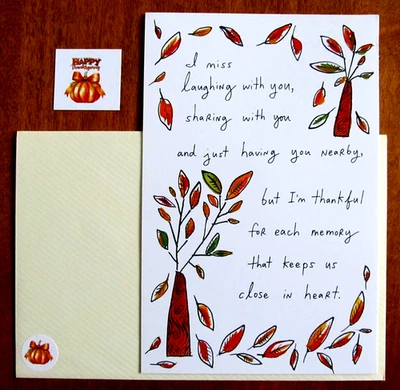 HAPPY
Thanksgiving
I miss
laughing with you,
sharing with you
and just having you nearby,
but I'm thankful
for each memory
that keeps us
close in heart.